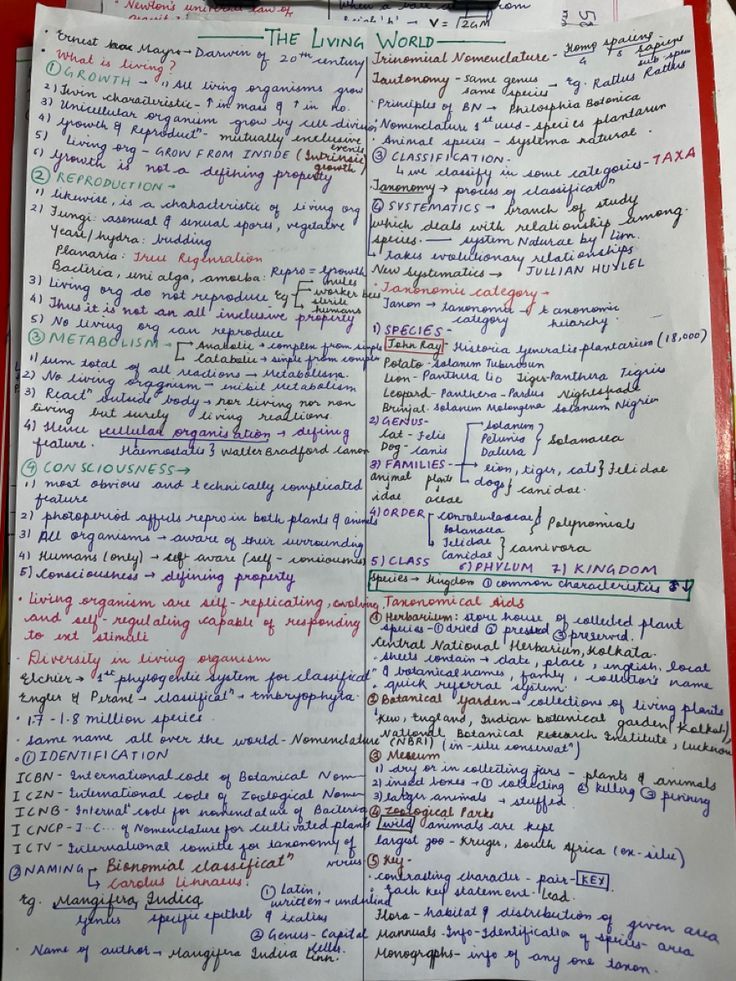 Newton's universal law of
THE LIVING WORLD
• Ernst Mayr → Darwin of 20th century
• What is living?
① GROWTH → "All living organisms grow
2) Twin characteristic - ↑ in mass & ↑ in no.
3) Unicellular organism grow by cell division
4) growth & Reproductn - mutually exclusive events
5) living org - GROW FROM INSIDE (Intrinsic growth)
6) growth is not a defining property
② REPRODUCTION →
1) likewise, is a characteristic of living org
2) Fungi: asexual & sexual spores, vegetative
Yeast/hydra: budding
Planaria: True Regenration
Bacteria, uni algo, amoeba: Repro = growth
3) living org do not reproduce eg mules
worker bees
sterile humans
4) Thus it is not an all inclusive property
5) No living org can reproduce
③ METABOLISM → Anabolic → complex from simple
Catabolic → simple from complex
1) sum total of all reactions → Metabolism.
2) No living organism - inibit metabolism
3) Reactn outside body → nor living nor non
living but surely living reactions.
4) Hence cellular organisation → defining
feature. Haemostatis } Walter Bradford Canon
④ CONSCIOUSNESS →
1) most obvious and technically complicated
feature
2) photoperiod affects repro in both plants & animals
3) All organisms → aware of their surrounding
4) Humans (only) → self aware (self-consiousness)
5) Consciousness → defining property
• living organism are self-replicating, evolving
and self-regulating capable of responding
to ext stimuli
• Diversity in living organism
Eichier → 1st phylogentic system for classificatn
Engler & Prant → classificatn → Embryophyta
• 1.7 - 1.8 million species.
• same name all over the world - Nomenclature
• ① IDENTIFICATION
ICBN - International code of Botanical Nom
ICZN - International code of Zoological Nome
ICNB - Internatn code for nomenclature of Bacteria
ICNCP - I-C... of Nomenclature for cultivated plants
ICTV - International comitte for taxonomy of virus
② NAMING Bionomial classificatn
Carolus Linnaeus.
Eg. Mangifera Indica
Genus specific epithet
① Latin,
written → underlind
& italics
② Genus - Capital
• Name of author → Mangifera Indica Linn.
Trinomial Nomenclature - Homo sapiens sapiens
G S sub spen
Tautonomy - same genus
same species eg. Rattus Rattus
• Principles of BN → Philosphia Botonica
• Nomenclature 1st used - species plantarum
• Animal species - systema natural.
③ CLASSIFICATION -
↳ we classify in some categories - TAXA
Taxonomy → process of classificatn
④ SYSTEMATICS → branch of study
which deals with relationship among
species. — system Naturae by Linn.
↳ takes evolutionary relationships
New systematics → JULLIAN HUXLEL
• Taxonomic category →
Taxon → taxonomic category → taxonomic hiearchy
1) SPECIES -
John Ray - Historia Generalis plantarium (18,000)
Potato - Solanum Tuberosum
Lion - Panthera lio Tiger - Panthera Tigris
Leopard - Panthera - Pardus Nightshade
Brinjal - Solanum Melongena Solanum Nigrum
2) GENUS -
Cat - Felis
Dog - canis
Solanum
Petunia
Datura
} Solanacea
3) FAMILIES -
animal plants
idae aceae
lion, tiger, cats } Felidae
dogs } canidae.
4) ORDER convolvulaceae
Solanacea } Polynomials
Felidae
Canidae } carnivora
5) CLASS 6) PHYLUM 7) KINGDOM
species → kingdom ① common characteristics ↓
Taxonomical Aids
① Herbarium: store house of collected plant
species - ① dried ② pressed ③ preserved.
Central National Herbarium, Kolkata.
• sheets contain → date, place, english, local
& botanical names, family, collector's name
• quick referral system.
② Botanical Garden → collections of living plants
• Kew, England, Indian botanical garden (Kolkata)
National Botanical Research Institute, Lucknow
(NBRI) (in-situ conservatn)
③ Meseum
1) dry or in collecting jars - plants & animals
2) insect boxes → ① collecting ② killing ③ pinning
3) larger animals → stuffed
④ Zoological Parks
wild animals are kept
largest zoo - Kruger, South Africa (ex-situ)
⑤ Key -
• contrasting character - pair - KEY
• Each key statement - lead.
Flora - habitat & distribution of given area
Mannuals - Info - Identification of species - area
Monographs - info of any one taxon.